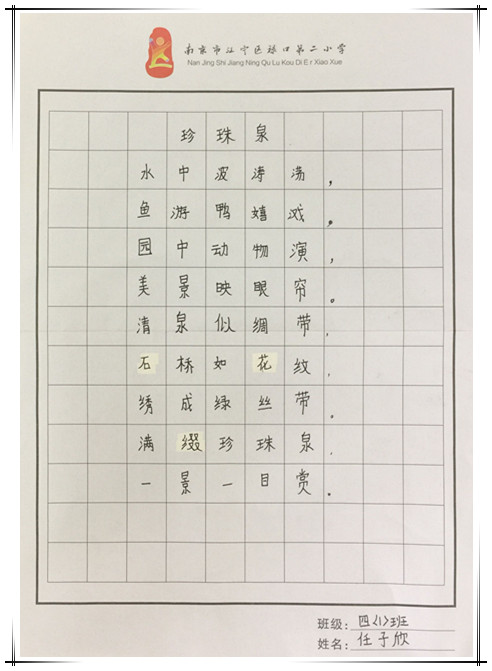 南京市江宁区禄口第二小学
Nan Jing Shi Jiang Ning Qu Lu Kou Di E.r Xiao Xue
珍珠泉
水中波涛荡，
鱼游鸭嬉戏。
园中动物演，
美景映眼帘。
清泉似绸带，
石桥如花纹，
绣成绿丝带。
满缀珍珠泉，
一景一目赏。
班级：四(1)班
姓名：任子欣